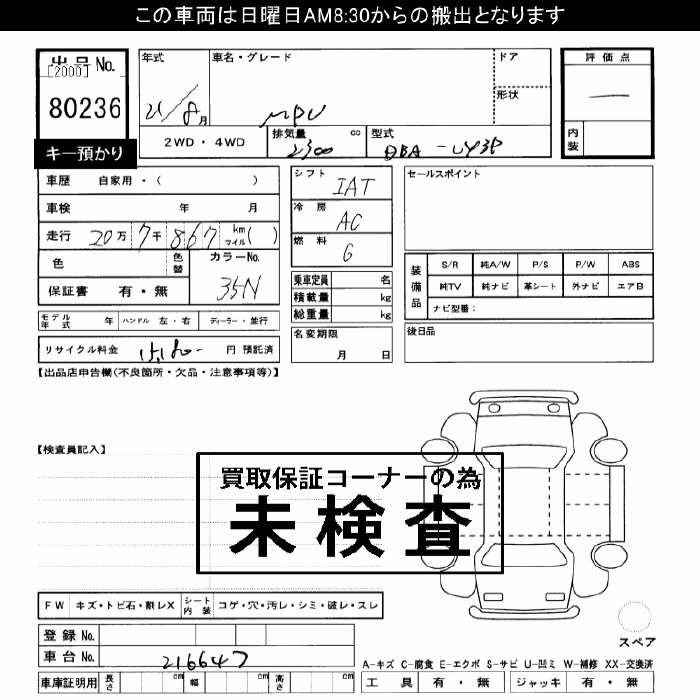 この車両は日曜日AM8:30からの搬出となります
出品No.
[2000]
80236
キー預かり
年式
21/8月
車名・グレード
MPV
ドア
形状
2WD・4WD
排気量 cc
2300
型式
DBA-LY3P
評価点
一
内装
車歴 自家用・( )
車検 年 月
走行 20万7千867 km マイル( )
色
色替
カラーNo.
35N
保証書 有・無
シフト
IAT
冷房
AC
燃料
G
セールスポイント
乗車定員 名
積載量 kg
総重量 kg
装備品
S/R 純A/W P/S P/W ABS
純TV 純ナビ 革シート 外ナビ エアB
ナビ型番:
モデル年式 年 ハンドル 左・右 ディーラー・並行
名変期限
月 日
後日品
リサイクル料金 15,180- 円 預託済
【出品店申告欄(不良箇所・欠品・注意事項等)】
【検査員記入】
買取保証コーナーの為
未検査
FW キズ・トビ石・割レX シート内装 コゲ・穴・汚レ・シミ・破レ・スレ
登録No.
車台No. 216647
車庫証明用 長さ cm 幅 cm 高さ cm
スペア
A-キズ C-腐食 E-エクボ S-サビ U-凹ミ W-補修 XX-交換済
工具 有・無 ジャッキ 有・無